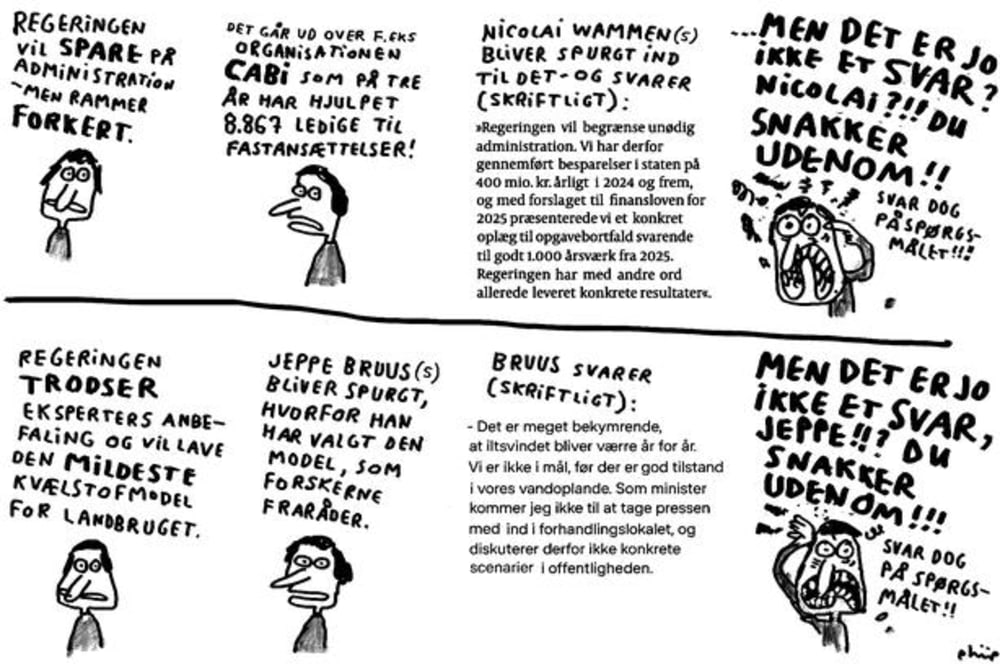 REGERINGEN
VIL SPARE PÅ
ADMINISTRATION
-MEN RAMMER
FORKERT.
DET GÅR UD OVER F.EKS
ORGANISATIONEN
CABI SOM PÅ TRE
ÅR HAR HJULPET
8.867 LEDIGE TIL
FASTANSÆTTELSER!
NICOLAI WAMMEN(S)
BLIVER SPURGT IND
TIL DET-OG SVARER
(SKRIFTLIGT):
»Regeringen vil begrænse unødig
administration. Vi har derfor
gennemført besparelser i staten på
400 mio. kr. årligt i 2024 og frem,
og med forslaget til finansloven for
2025 præsenterede vi et konkret
oplæg til opgavebortfald svarende
til godt 1.000 årsværk fra 2025.
Regeringen har med andre ord
allerede leveret konkrete resultater«.
...MEN DET ER JO
IKKE ET SVAR?
NICOLAI?!! DU
SNAKKER
UDENOM!!
SVAR DOG
PÅ SPØRGS-
MÅLET!!!
REGERINGEN
TRODSER
EKSPERTERS ANBE-
FALING OG VIL LAVE
DEN MILDESTE
KVÆLSTOFMODEL
FOR LANDBRUGET.
JEPPE BRUUS(S)
BLIVER SPURGT,
HVORFOR HAN
HAR VALGT DEN
MODEL, SOM
FORSKERNE
FRARÅDER.
BRUUS SVARER
(SKRIFTLIGT):
- Det er meget bekymrende,
at iltsvindet bliver værre år for år.
Vi er ikke i mål, før der er god tilstand
i vores vandoplande. Som minister
kommer jeg ikke til at tage pressen
med ind i forhandlingslokalet, og
diskuterer derfor ikke konkrete
scenarier i offentligheden.
MEN DET ER JO
IKKE ET SVAR,
JEPPE!!? DU
SNAKKER
UDENOM!!!
SVAR DOG
PÅ SPØRGS-
MÅLET!!